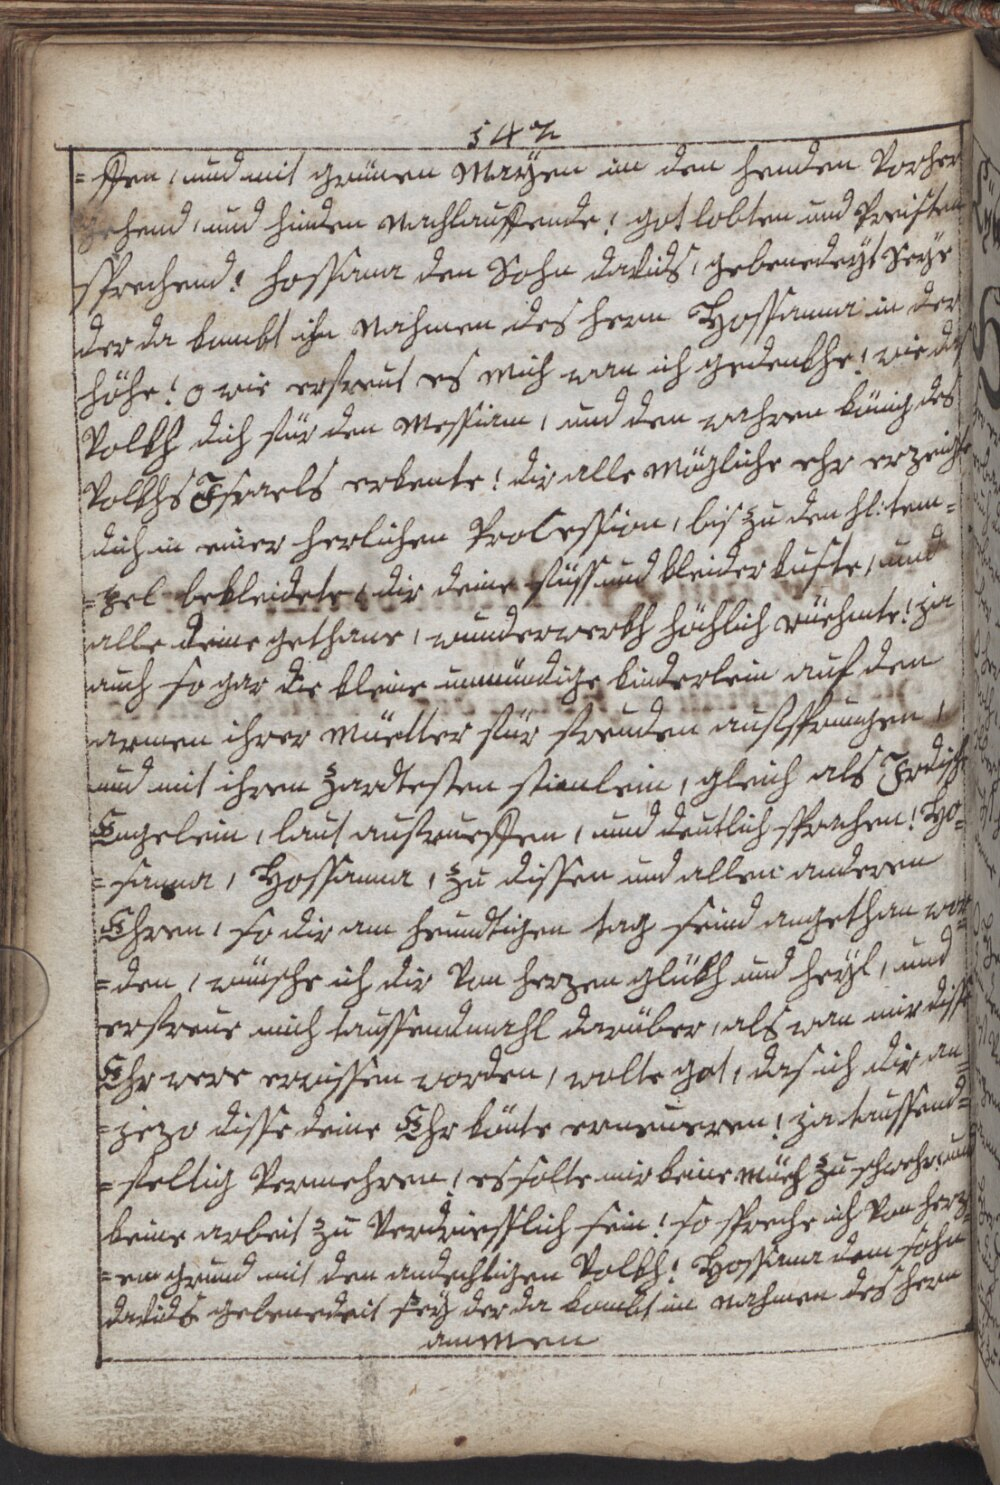 542
=ffen, und mit grünen Mayen in den henden Vorher
gehend, und hinden nachlauffende! got lobten und Preisten
sprechend! hossana den Sohn davids, gebenedeyt Seye
der da kumbt ihn Nahmen des hern Hossanna in der
höhe! o wie erfreut es mich wan ich gedenckhe! wie das
Volkh dich für den Messiam, und den wahren künig des
Volkhs Israels erkente! dir alle mögliche ehr erzeigte
dich in einer herlichen Procession, bis zu den hl: tem=
=pel bekleidete, dir deine füss und kleider küste, und
alle deine gethane, wunderwerkh höchlich rüehmte! ja
auch so gar die kleine unmündige kinderlein auf den
armen ihrer Müetter für freuden aufsprungen,
und mit ihren zardtesten stimlein, gleich als Irdische
Engelein, laut ausrueffen, und deutlich sprachen! Ho=
=sanna, Hossanna, zu dissen und allen anderen
Ehren, so dir am heundtigen tag seind angethan wor=
=den, wünsche ich dir Von herzen glükh und heyl, und
erfreue mich taussendmahl darüber, als wan mir disse
Ehr were erwissen worden, wolte got, das ich dir an=
=jezo disse deine Ehr könte erneueren! ja taussend=
=feltig Vermehren! es solte mir keine müeh zu schwehr, und
keine arbeit zu Verdriesslich sein! so spreche ich Von herz=
=en grund mit den andechtigen Volkh! Hossana dem sohn
davids gebenedeit sey der da kombt im nahmen des hern
ammen